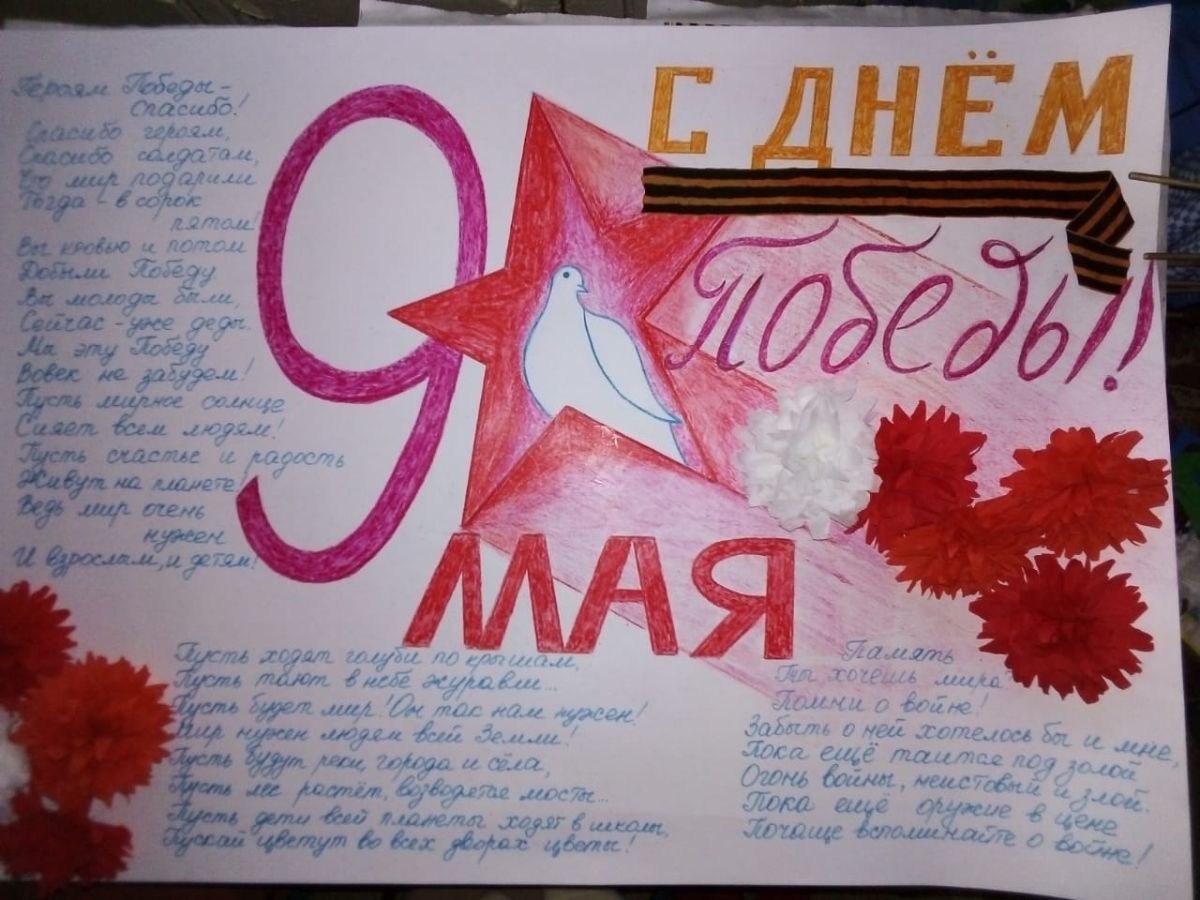 С ДНЁМ
Победы!!
9
МАЯ
Героям Победы -
спасибо!
Спасибо героям,
Спасибо солдатам,
Что мир подарили
Тогда - в сорок
пятом!
Вы кровью и потом
Добыли Победу
Вы молоды были,
Сейчас - уже деды.
Мы эту Победу
Вовек не забудем!
Пусть мирное солнце
Сияет всем людям!
Пусть счастье и радость
Живут на планете!
Ведь мир очень
нужен
И взрослым, и детям!
Пусть ходят голуби по крышам,
Пусть тают в небе журавли...
Пусть будет мир! Он так нам нужен!
Мир нужен людям всей Земли!
Пусть будут реки, города и сёла,
Пусть лес растёт, возводятся мосты...
Пусть дети всей планеты ходят в школы,
Пускай цветут во всех дворах цветы!
Память
Ты хочешь мира?
Помни о войне!
Забыть о ней хотелось бы и мне,
Пока ещё таится под золой
Огонь войны, неистовый и злой.
Пока ещё оружие в цене
Почаще вспоминайте о войне!